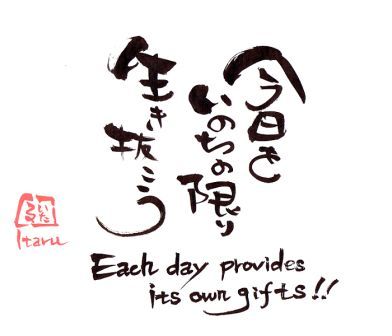 今日を
いのちの限り
生き抜こう
Each day provides
its own gifts!!
Itaru